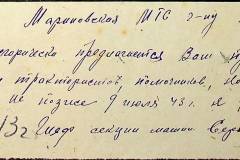 Мариновская МТС г-ну
горически предлагается Вам
трактористов, помощников,
не позже 9 июля 43 г.
секции машин